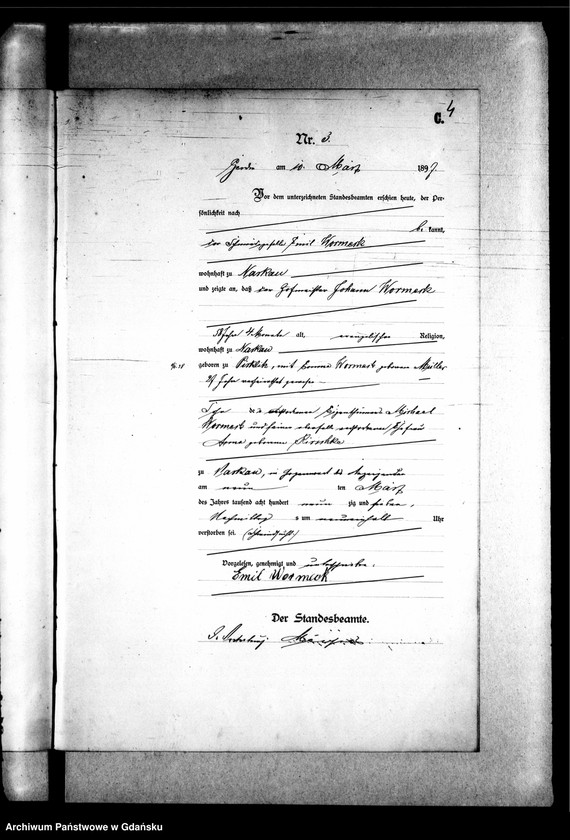 C. 4
Nr. 3.
am 10. März 1897.
Vor dem unterzeichneten Standesbeamten erschien heute, der Per-
sönlichkeit nach
be kannt,
der Emil Wormeck
wohnhaft zu Narkau
und zeigte an, daß der Hofmeister Johann Wormeck
58 Jahr 4 Monate alt, evangelischer Religion,
wohnhaft zu Narkau
geboren zu mit Wormeck geborenen Müller
Jahr verheirathet gewesen
Sohn des verstorbenen Eigenthümers Michael
Wormeck und seiner ebenfalls verstorbenen Ehefrau
Anna geborenen
zu Narkau, in Gegenwart des Anzeigenden
am neun ten März
des Jahres tausend acht hundert neun zig und sieben,
Nachmittag s um neuneinhalb Uhr
verstorben sei.
Vorgelesen, genehmigt und unterschrieben.
Emil Wormeck
Der Standesbeamte.
In Vertretung
Archiwum Państwowe w Gdańsku